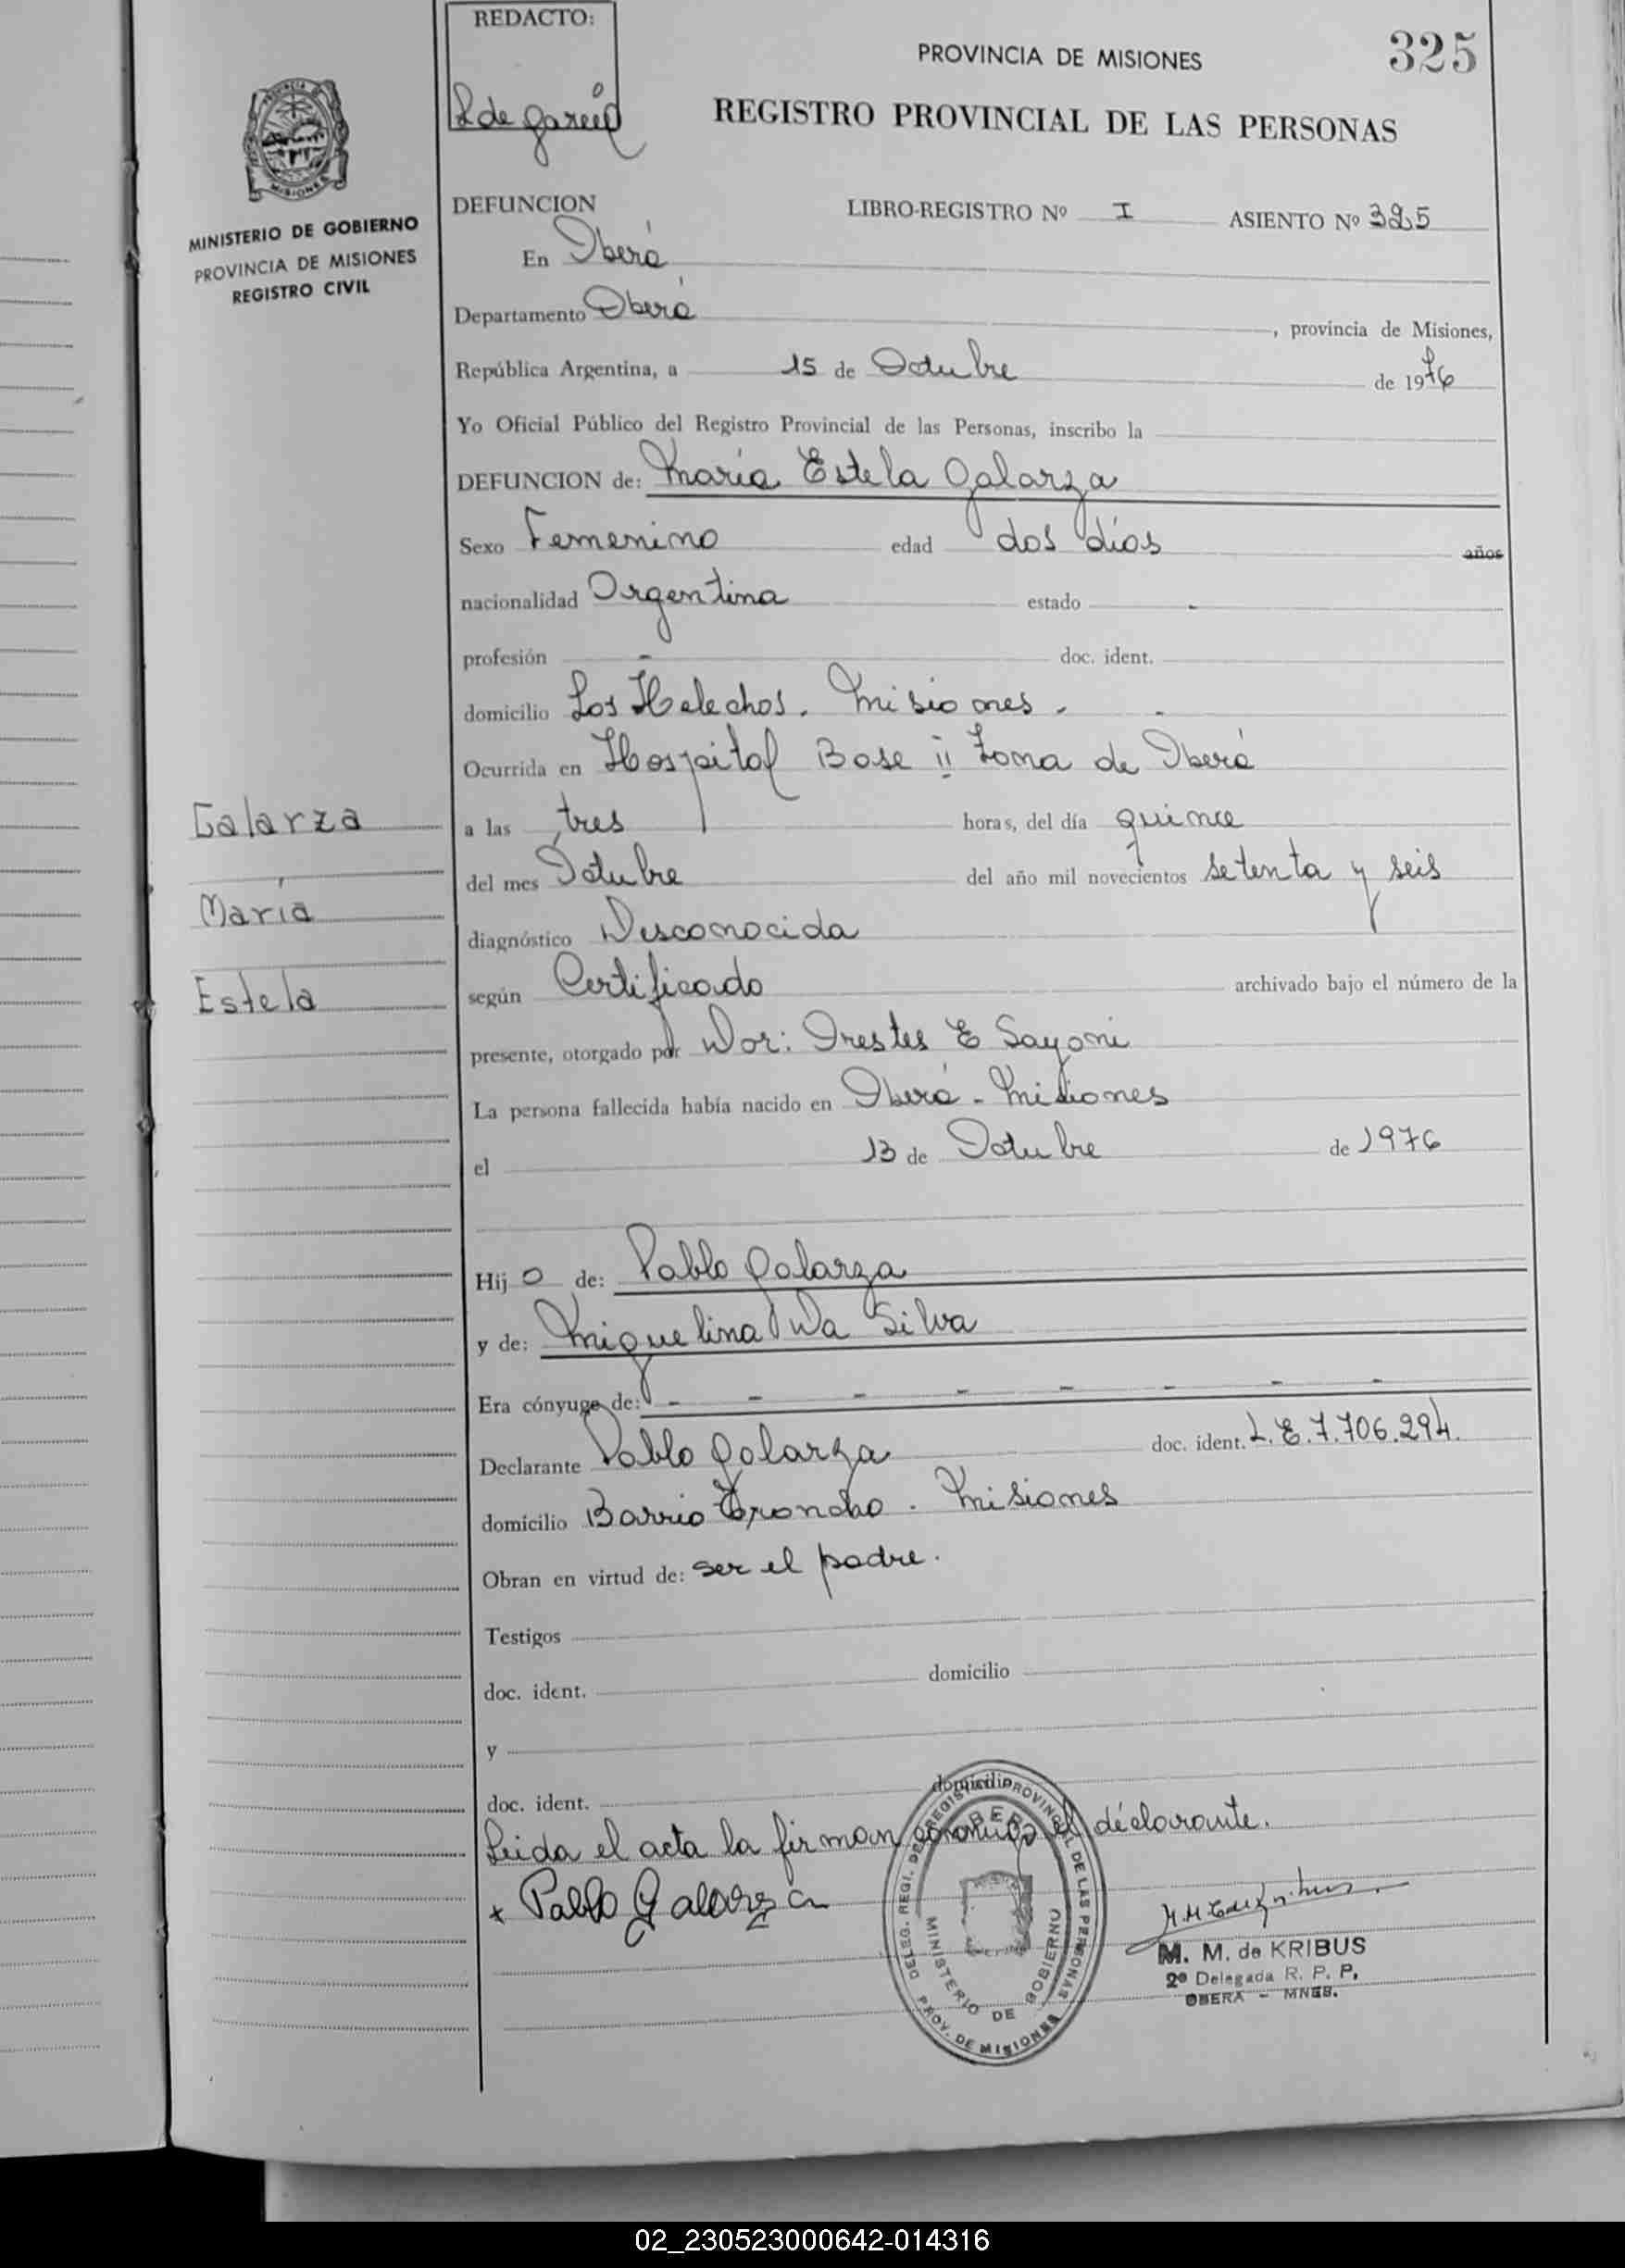 REDACTO:
L de García
PROVINCIA DE MISIONES
325
REGISTRO PROVINCIAL DE LAS PERSONAS
MISIONES
MINISTERIO DE GOBIERNO
PROVINCIA DE MISIONES
REGISTRO CIVIL
DEFUNCION LIBRO-REGISTRO Nº I ASIENTO Nº 325
En Oberá
Departamento Oberá, provincia de Misiones,
República Argentina, a 15 de Octubre de 1976
Yo Oficial Público del Registro Provincial de las Personas, inscribo la
DEFUNCION de: María Estela Galarza
Sexo Femenino edad dos días años
nacionalidad Argentina estado -
profesión - doc. ident.
domicilio Los Helechos. Misiones. -
Ocurrida en Hospital Base II Zona de Oberá
a las tres horas, del día quince
del mes Octubre del año mil novecientos setenta y seis
diagnóstico Desconocida
según Certificado archivado bajo el número de la
presente, otorgado por Dor: Orestes E
La persona fallecida había nacido en Oberá - Misiones
el 13 de Octubre de 1976
Galarza
María
Estela
Hijo de: Pablo Galarza
y de: Miquelina Da Silva
Era cónyuge de: - - - - - - - -
Declarante Pablo Galarza doc. ident. L.E.7.706.294.
domicilio Barrio . Misiones
Obran en virtud de: ser el padre.
Testigos
doc. ident. domicilio
y
doc. ident. domicilio
Leida el acta la firman conmigo el déclarante.
x Pablo Galarza
DELEG. REGI. DEL REGISTRO PROVINCIAL DE LAS PERSONAS
MINISTERIO DE GOBIERNO
PROV. DE MISIONES
M. M. de KRIBUS
2ª Delegada R. P. P.
OBERA - MNES.
02_230523000642-014316